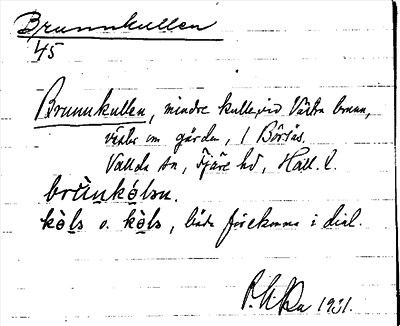 Brunnkullen
45
Brunnkullen, mindre kulle vid Västra brunn,
väster om gården, 1 Börsås.
Vallda sn, Fjäre hd, Hall. l.
brùnkólsn.
kòls o. kòls, båda förekomma i dial.
1931.